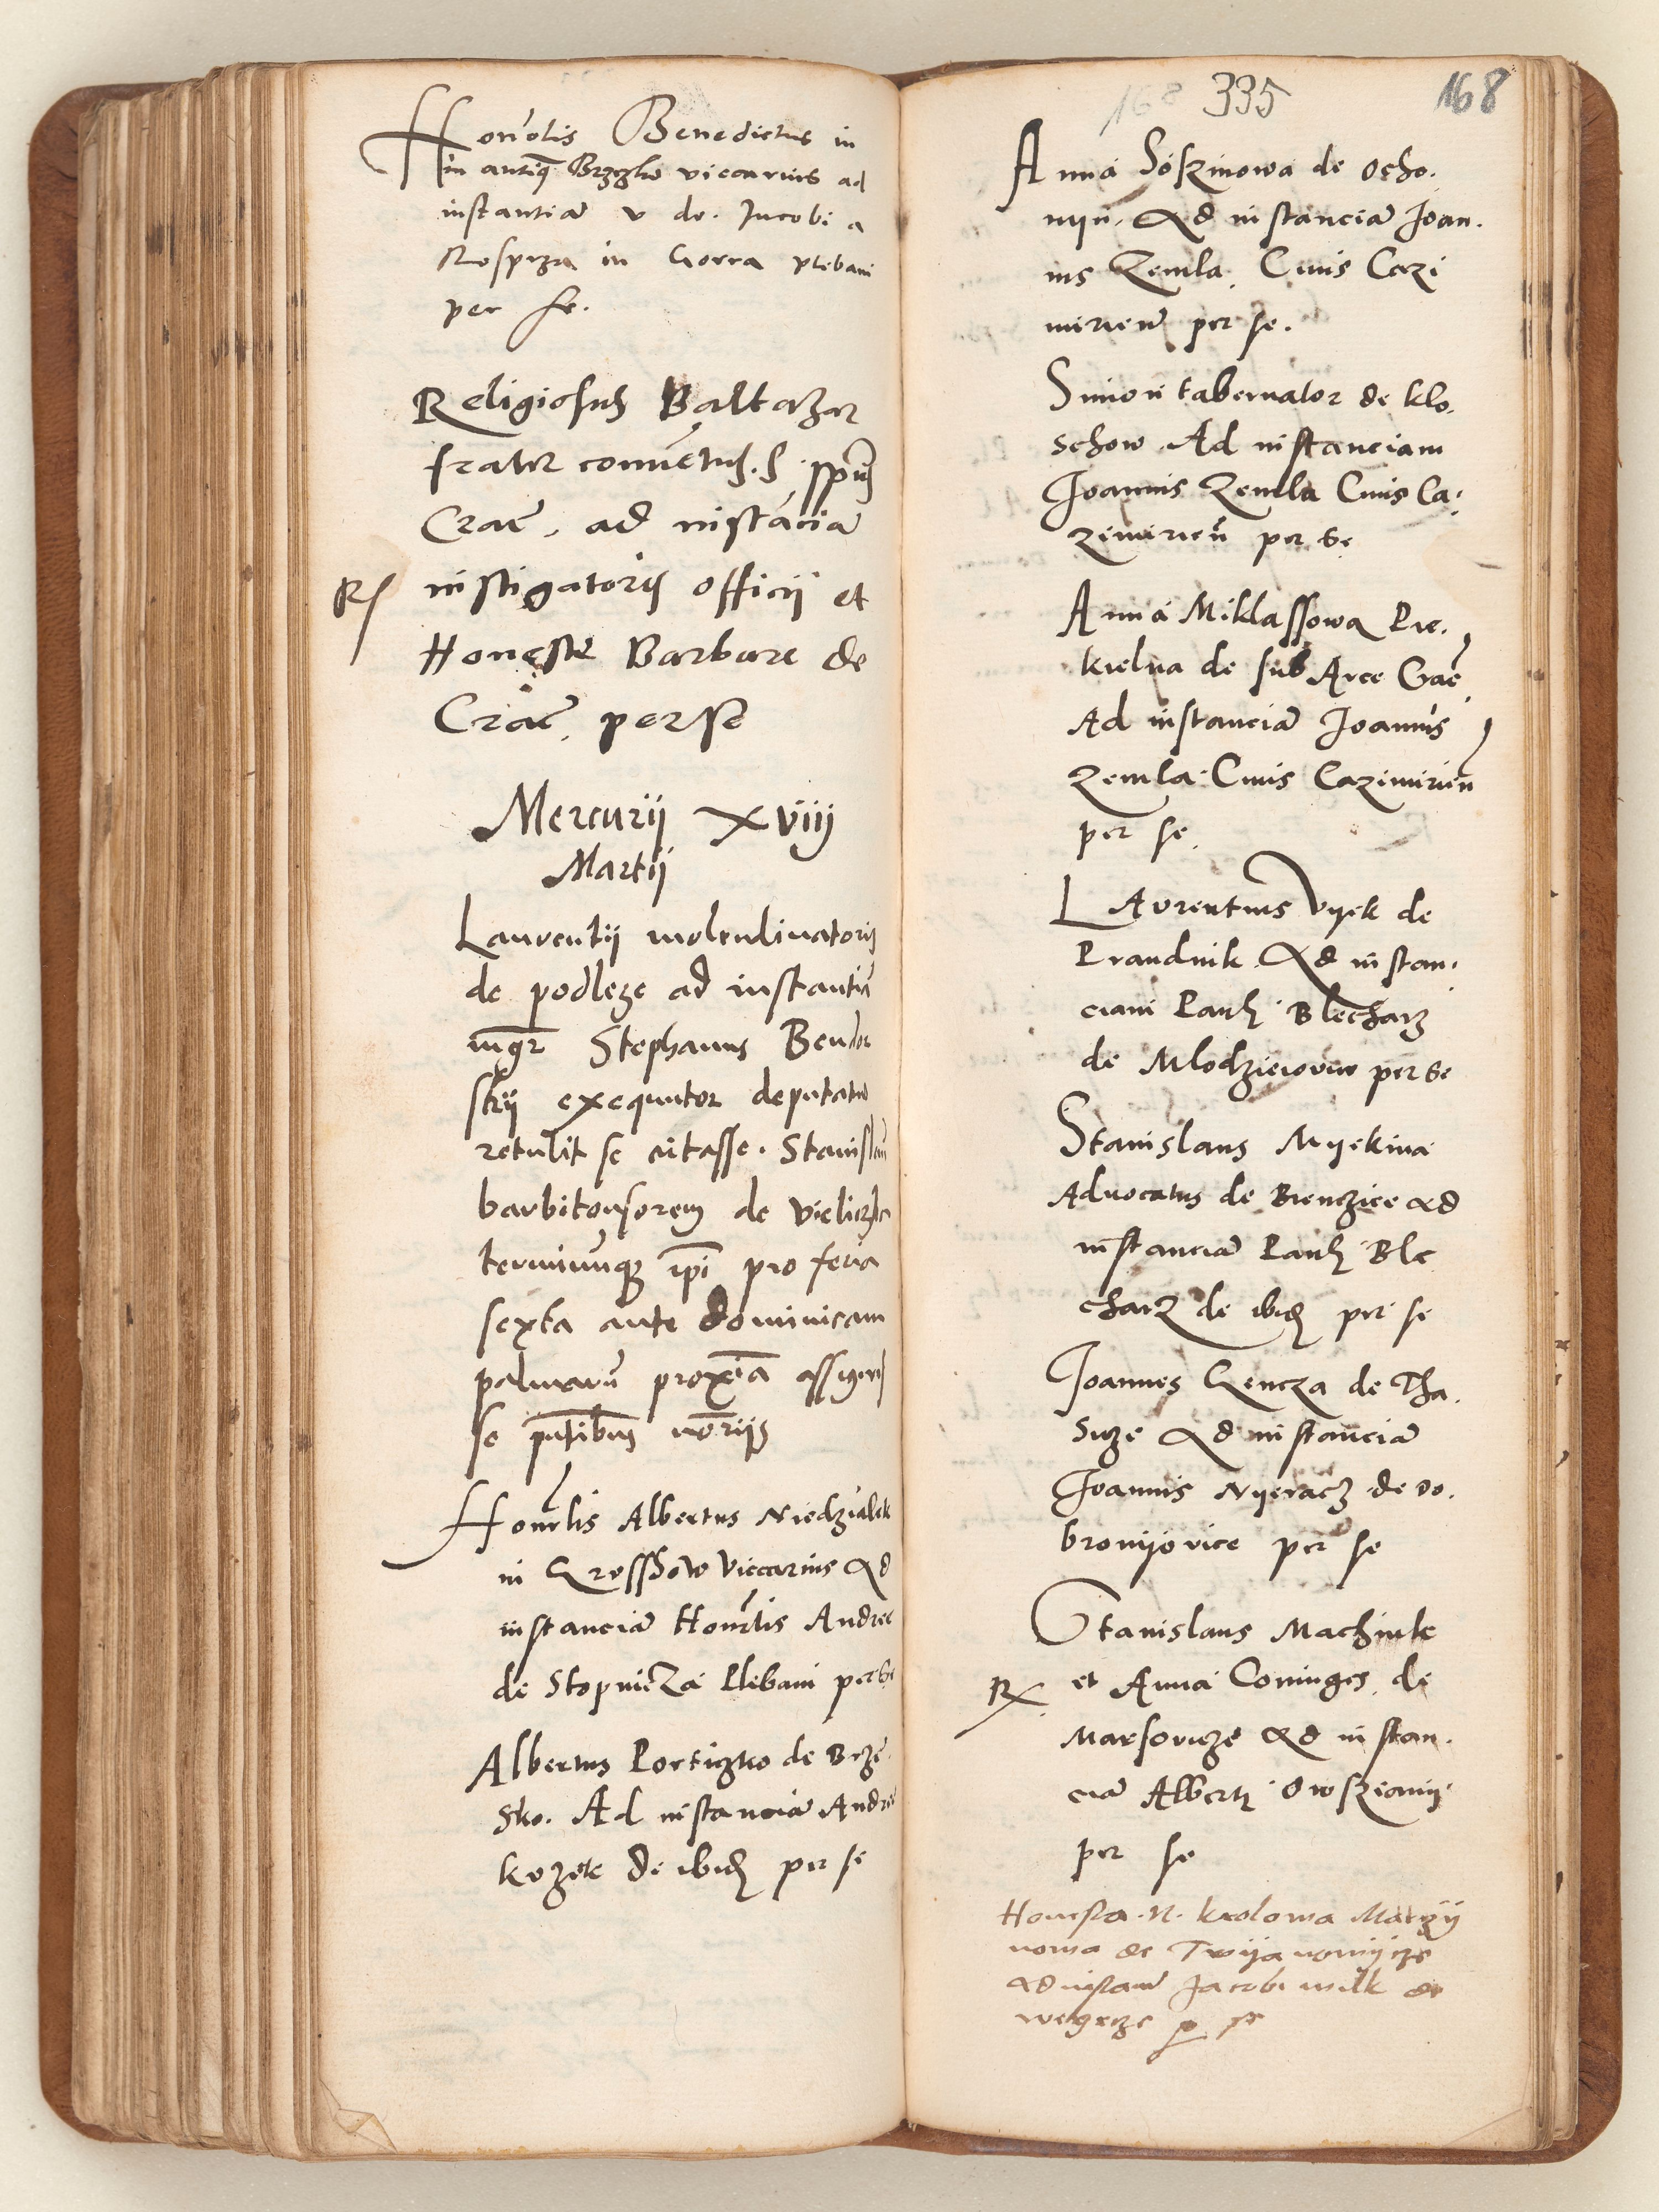 Honorlis Benedictus in
in antiq Brzezko viccarius ad
instantiam v do. Jacobi a
in Gorra plebani
per se.
Religiosus Baltazar
frater conventus S spus
Crac. ad instancia
R instigatoris officii et
Honeste Barbare de
Crac. per se
Mercurii xviij
Martij
Laurentij molendinatoris
de podleze ad instantia
mgr Stephanus Bendor
skij exequutor deputatus
retulit se citasse. Stanislau
barbitonsorem de vieliczka
terminumque ipi pro feria
sexta ante dominicam
palmarum proxia assignas
se pntibus
Honorlis Albertus Niedzialek
in Grossow Viccarius ad
instanciam Honorlis Andree
de Stopnicza Plebani per se
Albertus Portizko de Brze
sko. Ad instanciam Andree
kozek de ibid per se
168 335 168
Anna Soszinowa de Ocho.
nyn. Ad instanciam Joan.
nis Zemla. Civis Cazi
mirien per se.
Simon tabernator de klo.
schow. Ad instanciam
Joannis Zemla Civis Ca.
zimirien per se
Anna Miklassowa Pie.
kielna de sub Arce Crac
Ad instanciam Joannis
Zemla. Civis Cazimirien
per se.
Laurentius Vyek de
Prandnik Ad instan.
ciam Pauli Blecharz
de Mlodzieiowice per se
Stanislaus Myekina
Advocatus de Bienczice ad
instanciam Pauli Ble
charz de ibid per se
Joannes Gencza de Tha.
sicze Ad instanciam
Joannis Nyeracz de Do.
bronyovice per se
Stanislaus Machinke
R et Anna Coniuges. de
Marsovicze ad instan.
ciam Alberti Owsziany
per se
Honesta .N. krolowa Marczy
nowa de
ad instan Jacobi wilk de
wegrze p se